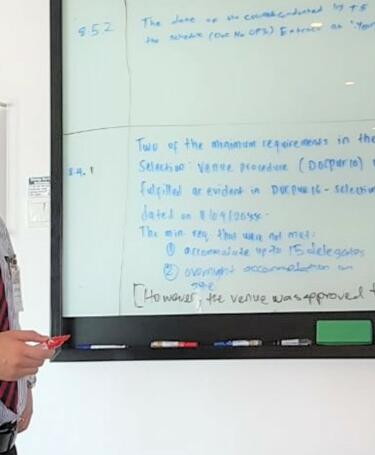 8.5.2
The date of the
the schedule (Doc No OP36) Extract as "Year
8.4.1
Two of the minimum requirements in the
Selection: Venue procedure (DOCPUR10)
fulfilled as evident in DOCPUR16 - selection
dated on 8/09/20
The min. req. that were not met:
① accommodate up to 15 delegates
② overnight accommodation on
site
[However, the venue was approved t